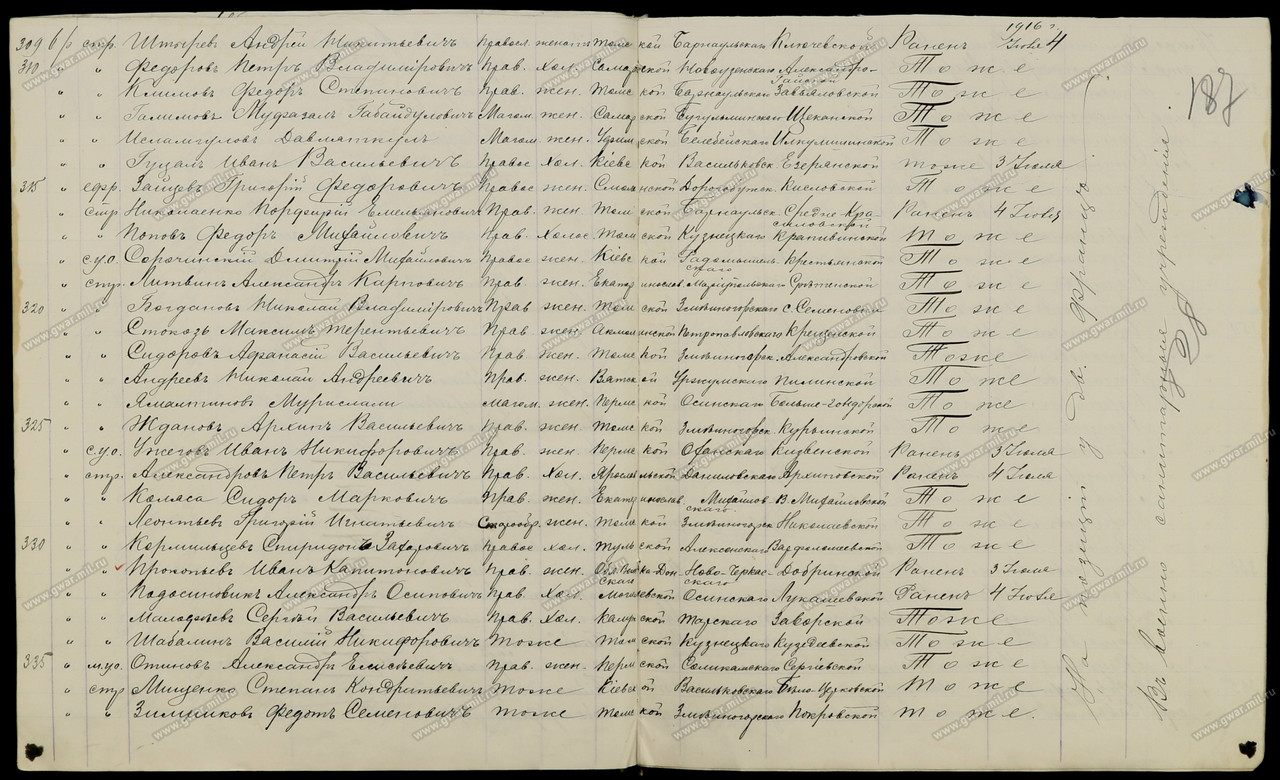 1916 г.
309 б/р стр. Штырев Андрей Никитьевичъ Правосл. женатъ Томской Барнаульской Ключевской Раненъ Июля 4
310 " " Федоровъ Петръ Владимировичъ Прав. Хол. Самарской Новоузенскаго Александро-Гайской Тоже
" " Климовъ Федоръ Степановичъ Прав. жен. Томской Барнаульской Завьяловской Тоже
" " Галимовъ Муфазалъ Габайдуловичъ Магом. жен. Самарской Бугульминскаго Тоже
" " Исламгуловъ Давляткул Магом. жен. Уфимской Белебейской Тоже
" " Гудалъ Иванъ Васильевичъ Правос. Хол. Кіевской Васильковск. Езерянской тоже 3 Іюля
315 " ефр. Зайцевъ Григорій Федоровичъ Правос. жен. Смоленской Дорогобужск. Кисловской Тоже
" стр. Николаенко Порфирій Емельяновичъ Прав. жен. Томской Барнаульск. Средне-Кра-силовской Раненъ 4 Іюля
" " Поповъ Федоръ Михайловичъ Прав. Холос. Томской Кузнецкаго Крапивинской Тоже
" с.у.о. Сорочинскій Дмитрій Михайловичъ Правос. жен. Кіевской Радомышельскаго Крестьянской Тоже
" стр. Литвинъ Александръ Карповичъ Прав. жен. Екатеринослав. Маріупольскаго Срѣтенской Тоже
320 " " Богдановъ Николай Владиміровичъ Прав. жен. Томской Змѣиногорскаго с. Семеновки Тоже
" " Стоказъ Максимъ Терентьевичъ Прав. жен. Акмолинской Петропавловскаго Крещенской Тоже
" " Сидоровъ Афанасій Васильевичъ Прав. жен. Томской Змѣиногорск. Александровской Тоже
" " Андреевъ Николай Андреевичъ Прав. жен. Вятской Уржумскаго Пилинской Тоже
" " Ямантиновъ Мурислали Магом. жен. Пермской Осинскаго Больше-Гондырской Тоже
325 " " Ждановъ Архипъ Васильевичъ Прав. жен. Томской Змѣиногорск. Курьинской Тоже
" с.у.о. Ужеговъ Иванъ Никифоровичъ Прав. жен. Пермской Оханскаго Кизвенской Раненъ 3 Іюля
" стр. Александровъ Петръ Васильевичъ Прав. Хол. Ярославльской Даниловскаго Архиповской Раненъ 4 Іюля
" " Коляса Сидоръ Марковичъ Прав. жен. Екатеринослав. Михайловскаго В. Михайловской Тоже
" " Леонтьевъ Григорій Игнатьевичъ Старообр. жен. Томской Змѣиногорск. Николаевской Тоже
330 " " Кормильцевъ Спиридонъ Захаровичъ Правос. Хол. Тульской Алексинскаго Варфоломеевской Тоже
" " Прокопьевъ Иванъ Капитоновичъ Прав. жен. Обл. Войска-Донскаго Ново-Черкасскаго Добринской Раненъ 3 Іюля
" " Подосиновикъ Александръ Осиповичъ Прав. Хол. Могилевской Осинскаго Лукашевской Раненъ 4 Іюля
" " Молодцовъ Сергѣй Васильевичъ Прав. Хол. Заворской Тоже
" " Шабалинъ Василій Никифоровичъ тоже Томской Кузнецкаго Кузедеевской Тоже
335 " м.у.о. Отиновъ Александръ Елисѣевичъ Прав. жен. Пермской Соликамскаго Сергіевской Тоже
" стр. Мищенко Степанъ Кондратьевичъ тоже Кіевской Васильковскаго Бѣло-Церковской Тоже
" " Зимниковъ Федотъ Семеновичъ тоже Томской Змѣиногорскаго Покровской тоже.
На позиціи у дв. Францъ.
Въ военно санитарныя учрежденія
187
www.gwar.mil.ru